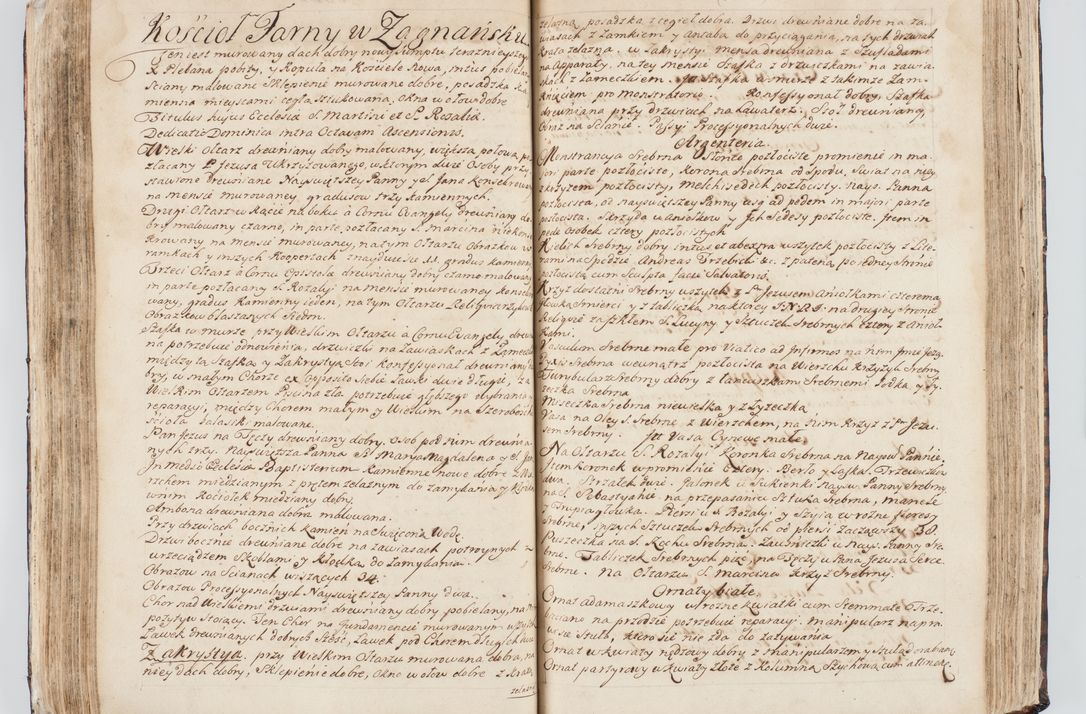 Kościoł Farny w Zagnańsku
Ten iest murowany dach dobry nowy sumptu teraznieyszego
X Plebana pobity, y Kopuła na Kościele Nowa, intus pobielany
Sciany malowane Sklepienie murowane dobre, posadzka z ka-
mienia mieyscami cegłą sztukowana, Okna w ołow dobre
Titulus huius Ecclesiæ S. Martini et S. Rozalia
Dedicatio Dominica intra Octavam Ascensionis.
Wielki Ołtarz drewniany dobry malowany, większa połowa po-
złacany P. Jezusa Ukrzyżowanego, w ktorym duże Osoby przy-
stawione drewniane Nayświętszey Panny y S. Jana Konsekrowany
na mensie murowaney, gradusow trzy kamiennych.
Drugi Ołtarz w kącie na boku à Cornu Evangely drewniany do-
bry malowany czarno, in parte pozłacany S. Marcina niekonse-
krowany na mensie murowaney, na tym Ołtarzu Obrazkow w
ramkach y inszych Kopersztach znayduie się 11. gradus kamienny
Trzeci Ołtarz à Cornu Epistolæ drewniany dobry czarno malowany
in parte pozłacany S. Rozalij na mensie murowaney Konsekro-
wany, gradus kamienny ieden, na tym Ołtarzu Religiarzyków
Obrazkow blaszanych siedm.
Szafka w murze przy Wielkim Ołtarzu à Cornu Evangely drewnia-
na potrzebuie odnowienia, drzwiczki na zawiaskach z zameczkiem
między tą Szafką y Zakrystyą stoi Konfesyonał drewniany do-
bry, w małym Chorze ex opposito siebie Ławki dwie długie, za
Wielkim Ołtarzem Piscina zła potrzebuie głębszego wybrania y
reparacyi, między Chorem małym y Wielkim na Szerokości
Kościoła Balaski malowane.
Pan Jezus na Tęczy drewniany dobry, osob pod nim drewnia-
nych trzy. Nayświętsza Panna S. Marya Magdalena y S. Jan
In medio Ecclesiæ Baptisterium Kamienne nowe dobre z Wie-
rzchem miedzianym z prętem żelaznym do zamykania y kłodką
w nim Kociołek miedziany dobry.
Ambona drewniana dobra malowana.
Przy drzwiach bocznich kamień na Swięconą Wodę.
Drzwi bocznie drewniane dobre na zawiasach potroynych z
wrzeciądzem Skoblami y Kłodką do zamykania.
Obrazow na Scianach wiszących 34.
Obrazow Processyonalnych Nayswiętszey Panny dwa.
Chor nad Wielkiemi drzwiami drewniany dobry pobielany, na nim
pozytyw stoiący. Ten Chor na fundamencie murowanym wszystek
Ławek drewnianych dobrych sześć, Ławek pod Chorem długich dwie
Zakrystya przy Wielkim Ołtarzu murowana dobra, na
niey dach dobry, Sklepienie dobre, Okno w ołow dobre z kratą
zelazną
zelazną posadzka z cegieł dobra. Drzwi drewniane dobre na za-
wiasach z Zamkiem y Antabą do przyciągania, na tych drzwiach
Krata żelazna. w Zakrystyi mensa drewniana z Szufladami
na Apparaty. na tey mensie Szafka z drzwiczkami na zawia-
skach z Zameczkiem. Ita Szafka w murze z takimże Zam-
knięciem pro Monstratorio. Konfessyonał dobry, Szafka
drewniana przy drzwiach na Lawaterz. Stoł drewniany,
Obraz na Scianie. Passyi Processyonalnych dwie.
Argenteria
Monstrancya Srebrna w Słońce pozłociste promienie in ma-
iori parte pozłociste, Korona Srebrna od spodu, Swiat na niey
z krzyżem pozłocisty, melchisedech pozłocisty. Nays. Panna
pozłocista, od nayświętszey Panny usq ad pedem in maiori parte
pozłocista. Skrzydła Aniołkow y Jch Sedesy pozłociste. Item in
pede Osobek cztery pozłocistych
Kielich Srebrny dobry intus et ab extra wszytek pozłocisty z Lite-
rami na spodzie Andreas Trzebicki &c. z pateną po iedney stronie
pozłocistą cum Sculpta facie Salvatoris.
Krzyż dostatni Srebrny wszytek z P. Jezusem Aniołkami czterema
główką Smierci y z tabliczką na ktorey J.N.R.J. na drugiey stronie
Religie za szkłem S. Lucyny y sztuczek Srebrnych cztery z Anioł-
kami.
Vasculum Srebrne małe pro Viatico ad Infirmos na nim Jmie Jezus
Pyxis Srebrna wewnątrz pozłocista na Wierzchu Krzyżyk Srebrny
Turybularz Srebrny dobry z łancuszkami Srebrnemi Łodka y Ły-
żeczka Srebrna
Miseczka Srebrna niewielka y z Łyżeczką
Vasa na Oley S. Srebrne z Wierzchem, na nim Krzyż z P. Jezu-
sem Srebrny. Ite Vasa Cynowe małe.
Na Ołtarzu S. Rozalij Koronka Srebrna na Nays. Pannie,
Item Koronek w promienie cztery. Berło y Laska. Trzewiczków
dwa. Strzałek dwie. Jabłonek u Sukienki Nays. Panny Srebrny
na S. Sebastyanie, na przepasaniu sztuka Srebrna, manele
y Trupia głowka. Piersi u S. Rozalij y Szyia w rożne floresy
Srebrne, inszych sztuczek Srebrnych od piersi zacząwszy 38.
Puszeczka na S. Rochu Srebrna. Zausniczki u Nays. Panny Sre-
brne. Tabliczek Srebrnych pięć, na Tęczy u Pana Jezusa Serce
Srebrne. Na Ołtarzu S. Marcina Krzyż Srebrny.
Ornaty białe
Ornat adamaszkowy w rożne kwiatki cum Stemmate Trze-
biciano na przodzie potrzebuie reparacyi, manipularz napra-
wić się Stuła, ktora się nie zda do zażywania
Ornat w kwiaty rządowy dobry z manipularzem y Stułą dorabianą
Ornat partyrowy w kwiaty złote z Kolumną Szychową cum attinentiis